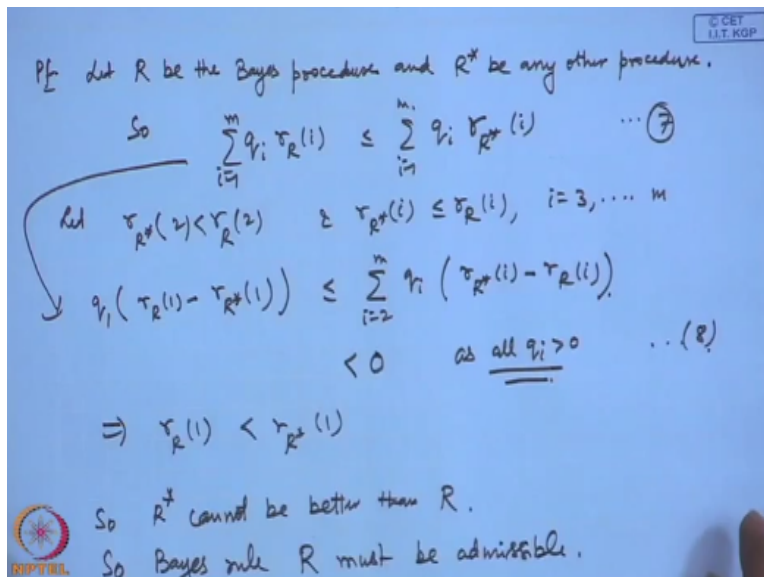 © CET
I.I.T. KGP
Pf Let R be the Bayes procedure and R* be any other procedure.
So ∑_{i=1}^{m} q_i r_R(i) ≤ ∑_{i=1}^{m} q_i r_{R*}(i) ... (7)
Let r_{R*}(2) < r_R(2) & r_{R*}(i) ≤ r_R(i), i = 3, .... m
q_1 ( r_R(1) - r_{R*}(1) ) ≤ ∑_{i=2}^{m} q_i ( r_{R*}(i) - r_R(i) )
< 0 as all q_i > 0 .. (8)
⇒ r_R(1) < r_{R*}(1)
So R* cannot be better than R.
So Bayes rule R must be admissible.
NPTEL